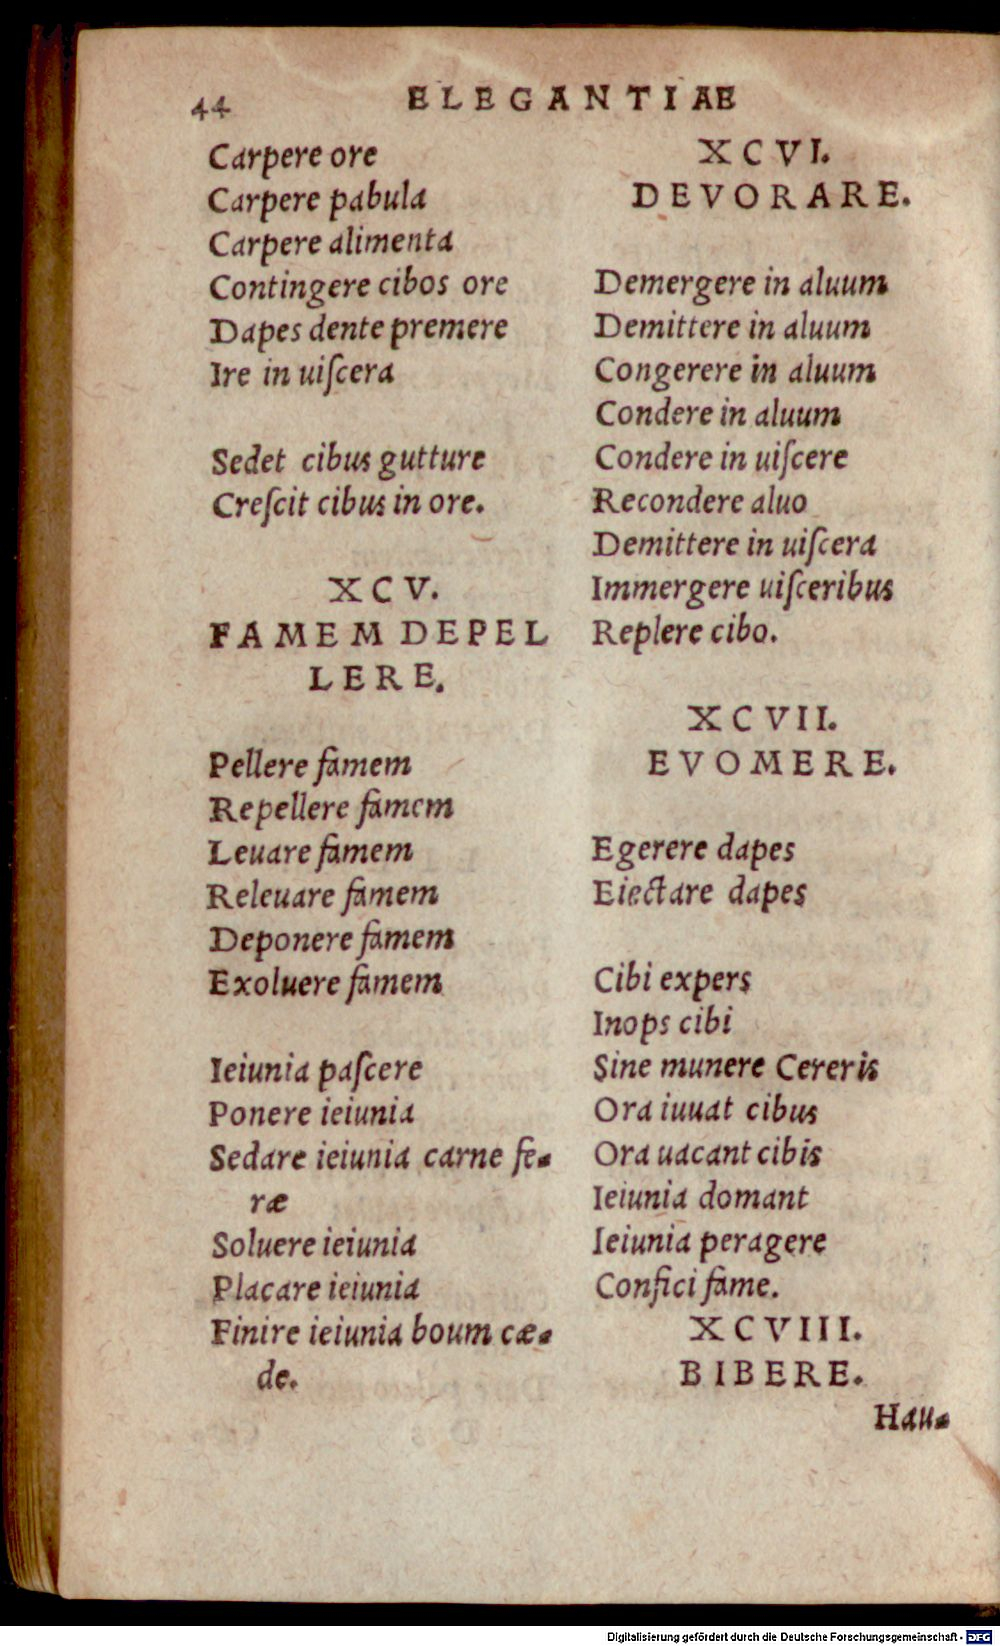 44
ELEGANTIAE
Carpere ore
Carpere pabula
Carpere alimenta
Contingere cibos ore
Dapes dente premere
Ire in uiſcera
Sedet cibus gutture
Creſcit cibus in ore.
XCV.
FAMEM DEPEL
LERE.
Pellere famem
Repellere famem
Leuare famem
Releuare famem
Deponere famem
Exoluere famem
Ieiunia paſcere
Ponere ieiunia
Sedare ieiunia carne fe-
ræ
Soluere ieiunia
Placare ieiunia
Finire ieiunia boum cæ-
de.
XCVI.
DEVORARE.
Demergere in aluum
Demittere in aluum
Congerere in aluum
Condere in aluum
Condere in uiſcere
Recondere aluo
Demittere in uiſcera
Immergere uiſceribus
Replere cibo.
XCVII.
EVOMERE.
Egerere dapes
Eiectare dapes
Cibi expers
Inops cibi
Sine munere Cereris
Ora iuuat cibus
Ora uacant cibis
Ieiunia domant
Ieiunia peragere
Confici fame.
XCVIII.
BIBERE.
Hau-
Digitalisierung gefördert durch die Deutsche Forschungsgemeinschaft - DFG